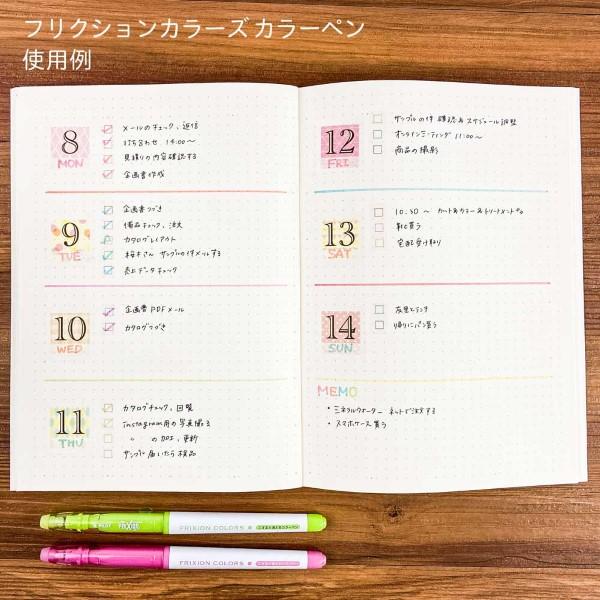 フリクションカラーズ カラーペン
使用例
8
MON
メールのチェック、返信
打ち合わせ 14:00〜
見積りの内容確認する
企画書作成
9
TUE
企画書つづき
備品チェック、注文
カタログレイアウト
桜井さん サンプルの件メールする
売上データチェック
10
WED
企画書PDFメール
カタログつづき
11
THU
カタログチェック、回覧
instagram用の写真撮る
〃 の加工、更新
サンプル届いたら検品
12
FRI
サンプルの件 確認&スケジュール調整
オンラインミーティング 11:00〜
商品の撮影
13
SAT
10:30〜 カット&カラー&トリートメント
靴を買う
宅配受け取り
14
SUN
友里とランチ
帰りにパン買う
MEMO
・ミネラルウォーター ネットで注文する
・スマホケース買う
PILOT
FRIXION
FRIXION COLORS
FRIXION COLORS